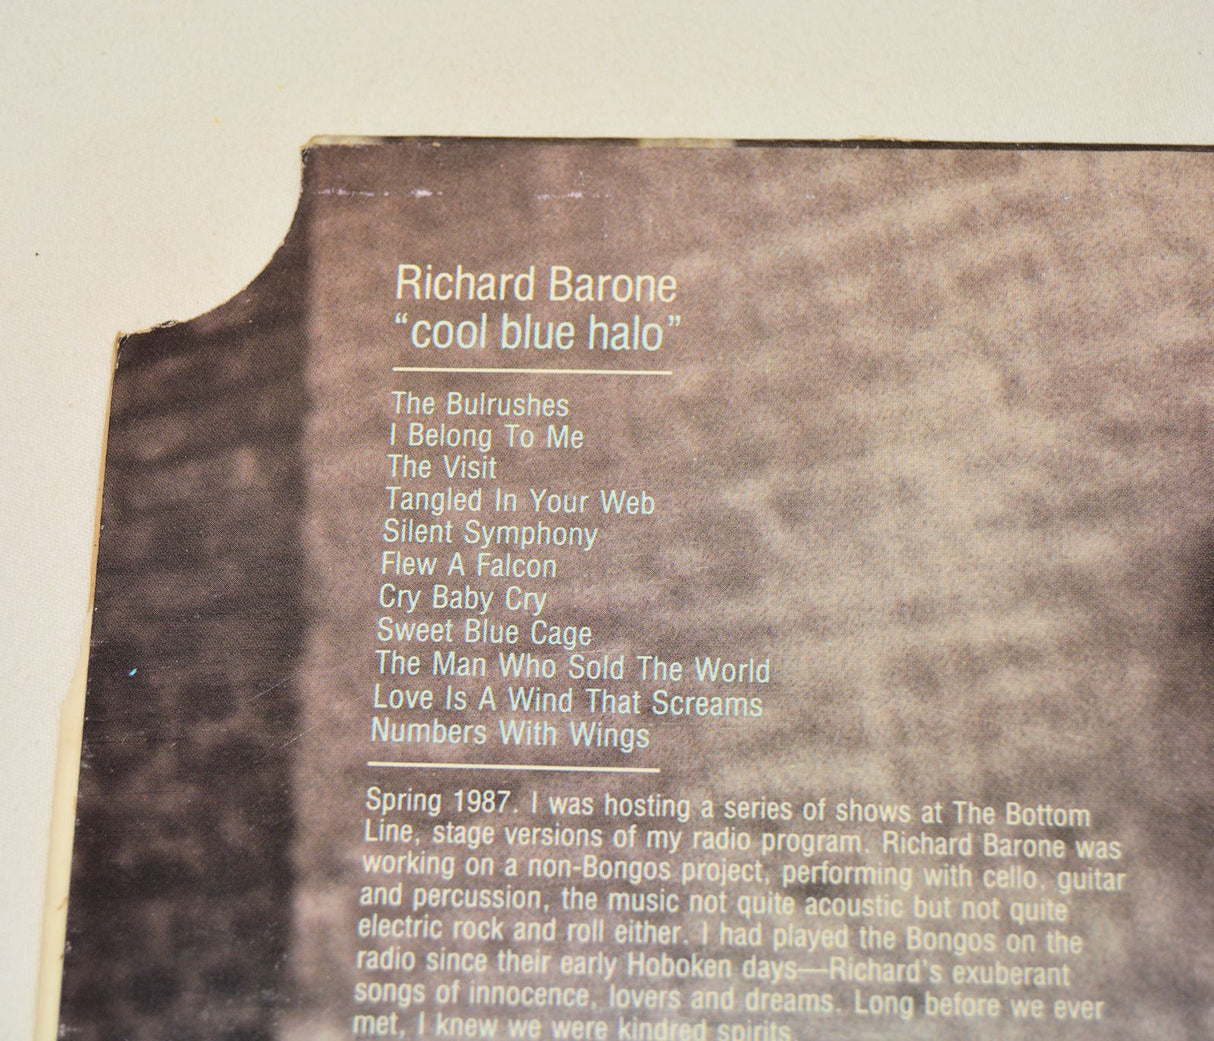 Richard Barone
“cool blue halo”
The Bulrushes
I Belong To Me
The Visit
Tangled In Your Web
Silent Symphony
Flew A Falcon
Cry Baby Cry
Sweet Blue Cage
The Man Who Sold The World
Love Is A Wind That Screams
Numbers With Wings
Spring 1987. I was hosting a series of shows at The Bottom
Line, stage versions of my radio program. Richard Barone was
working on a non-Bongos project, performing with cello, guitar
and percussion, the music not quite acoustic but not quite
electric rock and roll either. I had played the Bongos on the
radio since their early Hoboken days—Richard's exuberant
songs of innocence, lovers and dreams. Long before we ever
met, I knew we were kindred spirits